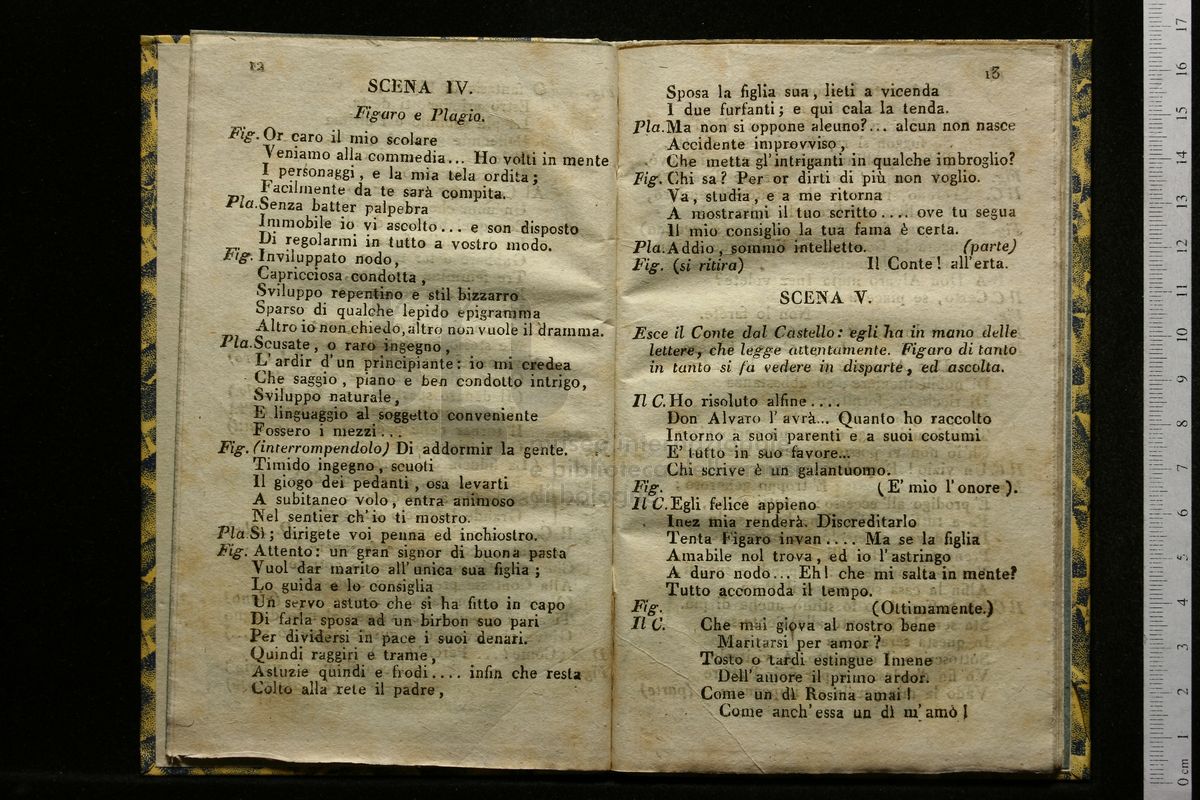 12
SCENA IV.
Figaro e Plagio.
Fig. Or caro il mio scolare
Veniamo alla commedia... Ho volti in mente
I personaggi, e la mia tela ordita;
Facilmente da te sarà compita.
Pla. Senza batter palpebra
Immobile io vi ascolto... e son disposto
Di regolarmi in tutto a vostro modo.
Fig. Inviluppato nodo,
Capricciosa condotta,
Sviluppo repentino e stil bizzarro
Sparso di qualche lepido epigramma
Altro io non chiedo, altro non vuole il dramma.
Pla. Scusate, o raro ingegno,
L'ardir d'un principiante: io mi credea
Che saggio, piano e ben condotto intrigo,
Sviluppo naturale,
E linguaggio al soggetto conveniente
Fossero i mezzi...
Fig. (interrompendolo) Di addormir la gente.
Timido ingegno, scuoti
Il giogo dei pedanti, osa levarti
A subitaneo volo, entra animoso
Nel sentier ch'io ti mostro.
Pla. Sì; dirigete voi penna ed inchiostro.
Fig. Attento: un gran signor di buona pasta
Vuol dar marito all'unica sua figlia;
Lo guida e lo consiglia
Un servo astuto che si ha fitto in capo
Di farla sposa ad un birbon suo pari
Per dividersi in pace i suoi denari.
Quindi raggiri e trame,
Astuzie quindi e frodi.... infin che resta
Colto alla rete il padre,
13
Sposa la figlia sua, lieti a vicenda
I due furfanti; e qui cala la tenda.
Pla. Ma non si oppone alcuno?... alcun non nasce
Accidente improvviso,
Che metta gl'intriganti in qualche imbroglio?
Fig. Chi sa? Per or dirti di più non voglio.
Va, studia, e a me ritorna
A mostrarmi il tuo scritto.... ove tu segua
Il mio consiglio la tua fama è certa.
Pla. Addio, sommo intelletto. (parte)
Fig. (si ritira) Il Conte! all'erta.
SCENA V.
Esce il Conte dal Castello: egli ha in mano delle
lettere, che legge attentamente. Figaro di tanto
in tanto si fa vedere in disparte, ed ascolta.
Il C. Ho risoluto alfine....
Don Alvaro l'avrà... Quanto ho raccolto
Intorno a suoi parenti e a suoi costumi
E' tutto in suo favore...
Chi scrive è un galantuomo.
Fig. (E' mio l'onore).
Il C. Egli felice appieno
Inez mia renderà. Discreditarlo
Tenta Figaro invan.... Ma se la figlia
Amabile nol trova, ed io l'astringo
A duro nodo... Eh! che mi salta in mente?
Tutto accomoda il tempo.
Fig. (Ottimamente.)
Il C. Che mai giova al nostro bene
Maritarsi per amor?
Tosto o tardi estingue Imene
Dell'amore il primo ardor.
Come un dì Rosina amai!
Come anch'essa un dì m'amò!